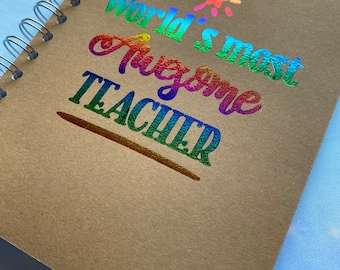 world's most
Awesome
TEACHER